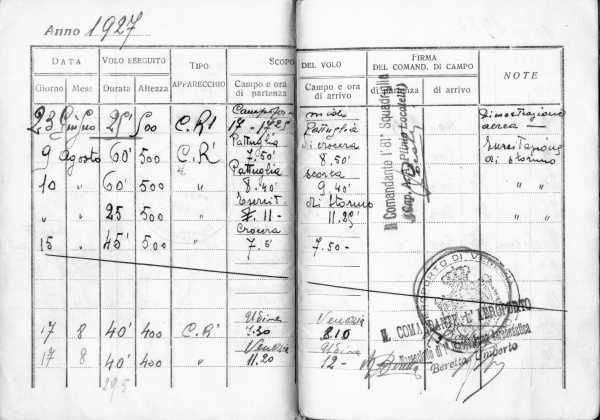 Anno 1927
DATA VOLO ESEGUITO TIPO APPARECCHIO SCOPO DEL VOLO FIRMA DEL COMAND. DI CAMPO NOTE
Giorno Mese Durata Altezza Campo e ora di partenza Campo e ora di arrivo di partenza di arrivo
23 Giugno 25' 500 C.R1 17 - 1725 Dimostrazione aerea
Pattuglia Pattuglia di crocera
9 Agosto 60' 500 C.R1 7.50' 8.50' Esercitazione di stormo
Pattuglia scorta
10 " 60' 500 " 8.40' 9.40' " "
Esercit. di Stormo
" " 25 500 " 11 - 11.25' " "
Crocera
15 " 45' 500 " 7.5' 7.50 -
Udine Venezia
17 8 40' 400 C.R1 7.30 8.10
Venezia Udine
17 8 40' 400 " 11.20 12 -
295
Il Comandante l'81ª Squadriglia
AEROPORTO DI VENEZIA
IL COMANDANTE L'AEROPORTO
Beretta Umberto